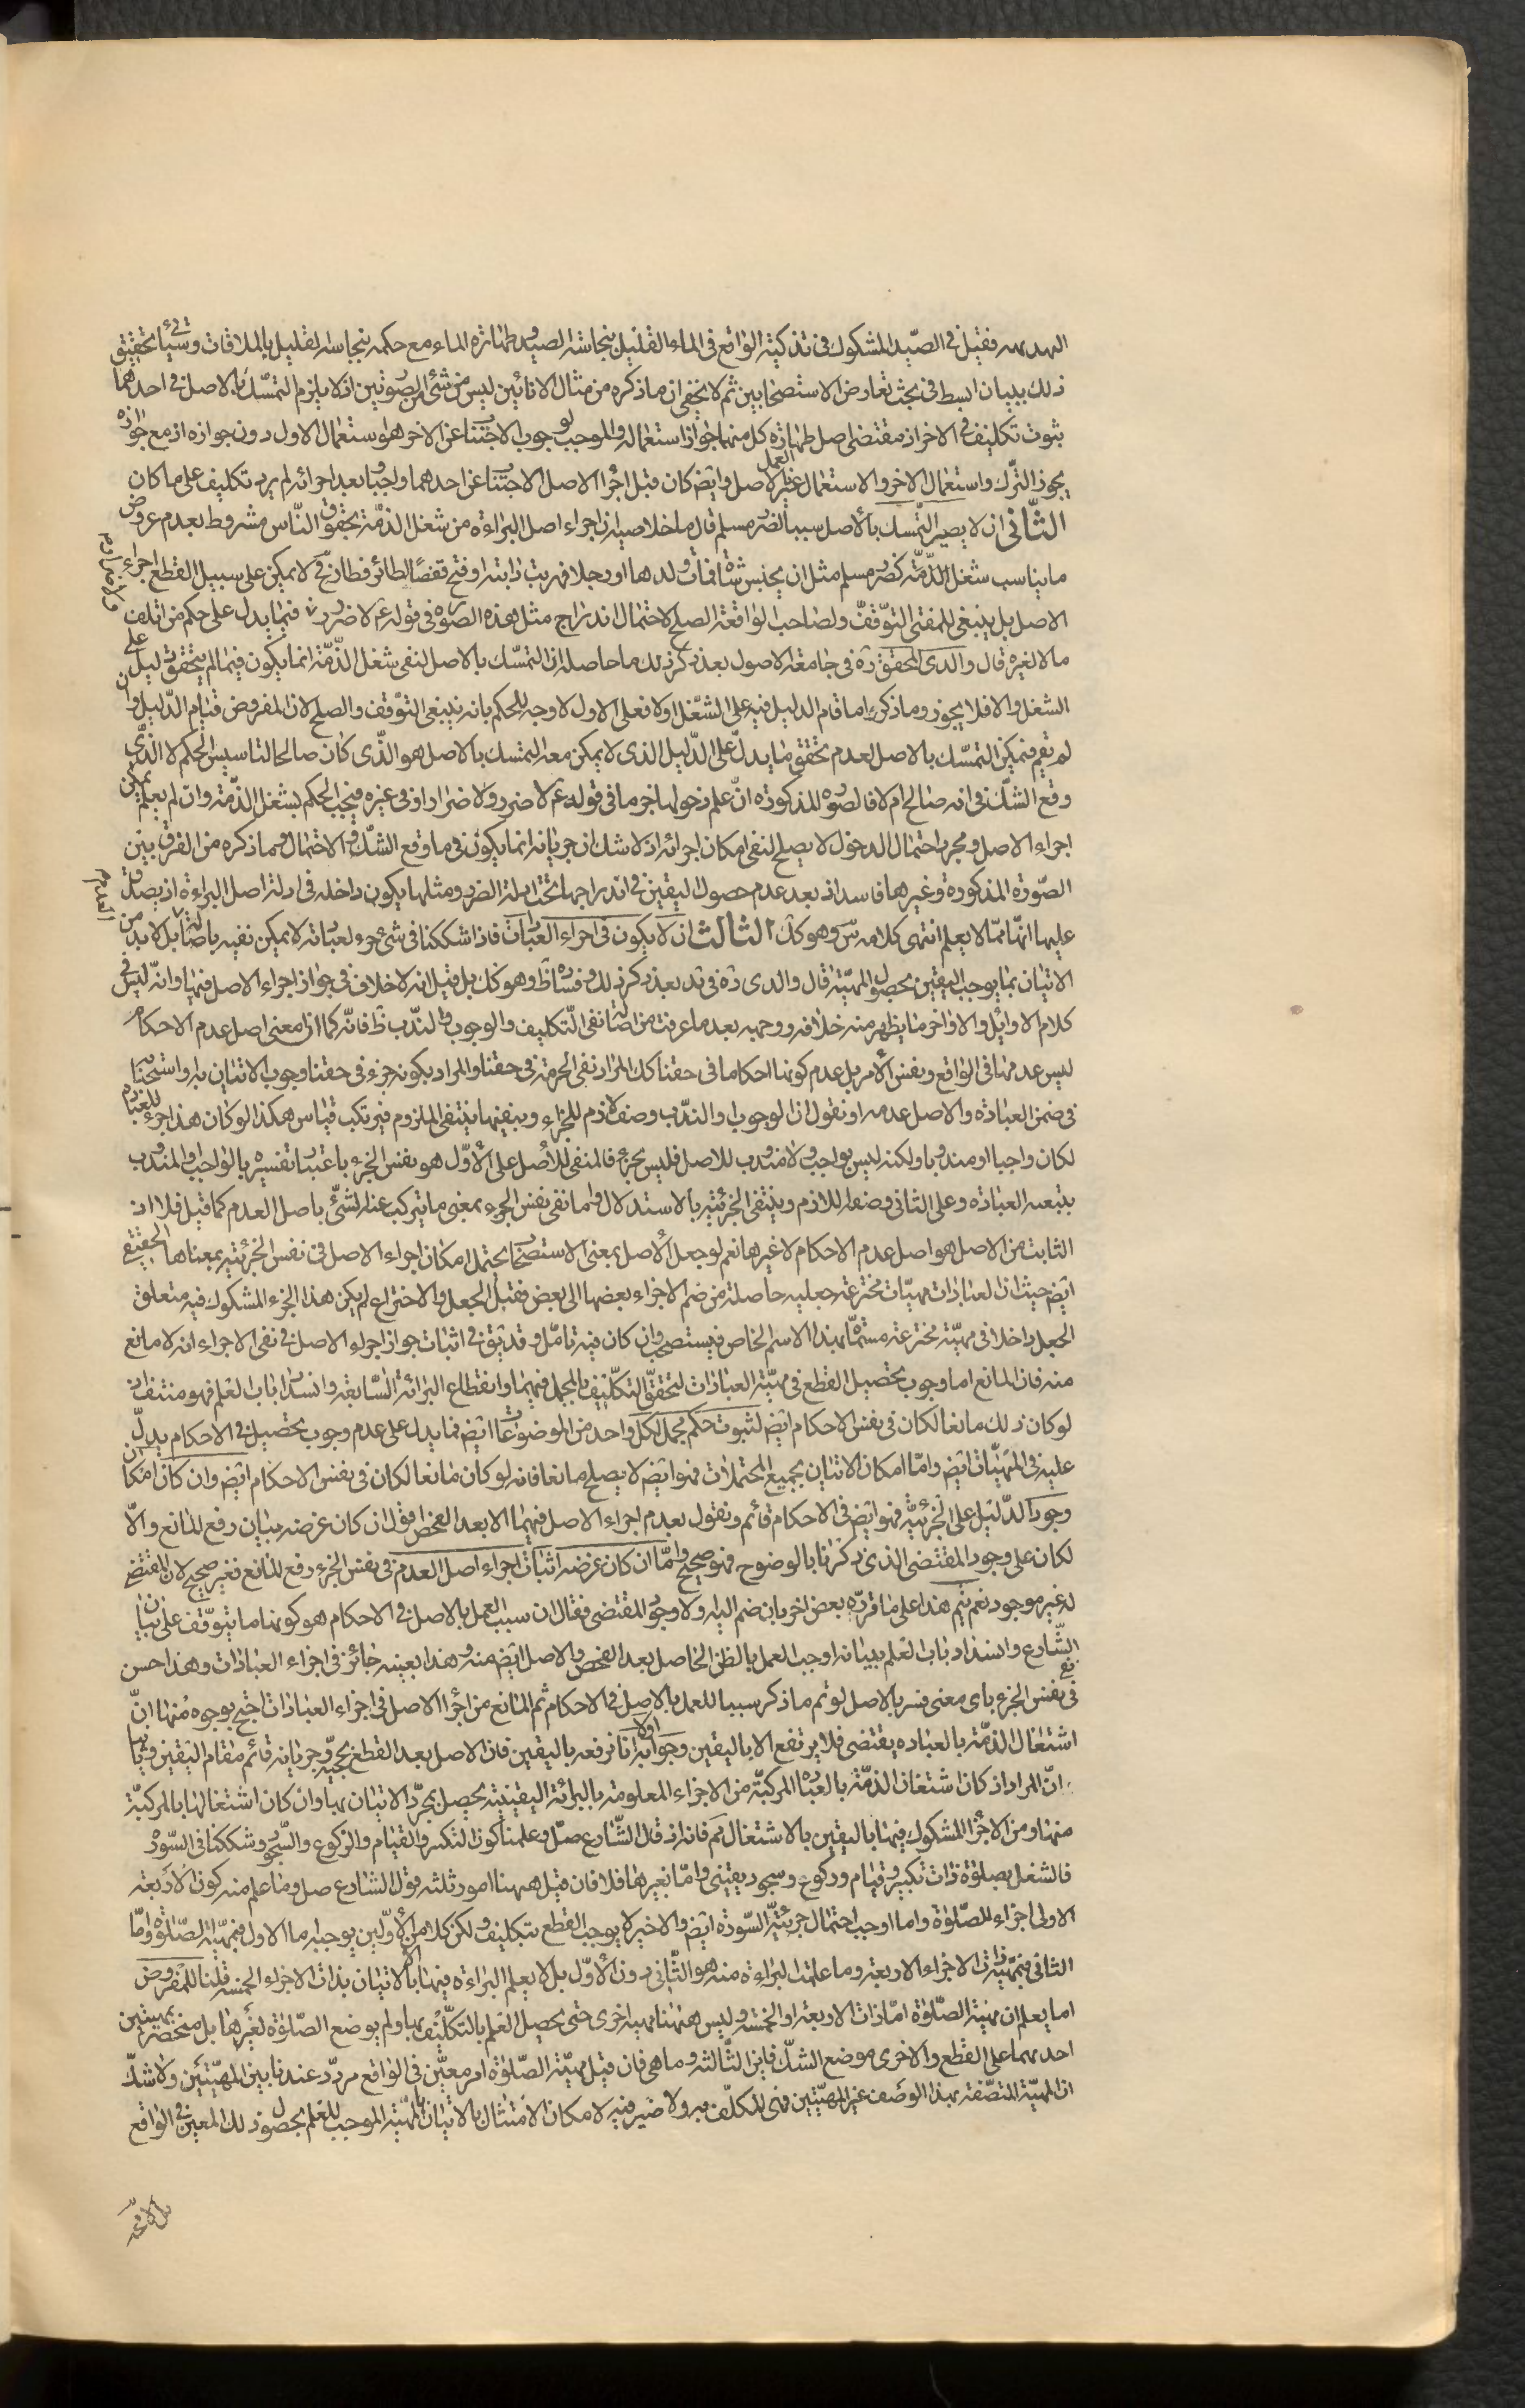 فقيل في الصّيد المشكوك في تذكيته الواقع في الماء القليل بنجاسة الصيد وطهارة الماء مع حكمه بنجاسة القليل بالملاقات وسيأتي تحقيق
ذلك ببيان ابسط في بحث تعارض الاستصحابين ثم لا يخفى ان ما ذكره من مثال الانائين ليس من شئ من الصورتين اذ لا يلزم التمسّك بالاصل في احدهما
ثبوت تكليف في الاخر اذ مقتضى اصل طهارة كل منهما جواز استعماله والموجب لوجوب الاجتناب عن الاخر هو استعمال الاول دون جوازه اذ مع جوازه
يجوز الترك واستعمال الاخر والاستعمال غير العمل بالاصل وايضا كان قبل اجراء الاصل الاجتناب عن احدهما واجبا وبعد اجرائه لم يرد تكليف على ما كان
الثانى ان لا يصير التمسك بالأصل سببا لضرر مسلم قال ما خلاصته ان اجراء اصل البراءة من شغل الذمّة بحقوق النّاس مشروط بعدم عروض
ما يناسب شغل الذّمّة كضرر مسلم مثل ان يحبس شاة فمات ولدها او رجلا فهربت دابته او فتح قفصا لطائر فطار فح لا يمكن على سبيل القطع اجراء
الاصل بل ينبغى للمفتى التوقّف ولصاحب الواقعة الصلح لاحتمال اندراج مثل هذه الصورة في قوله ع لا ضرر فيما يدل على حكم من اتلف
مالا لغيره قال والدى المحقق ره في جامعة الاصول بعد ذكر ذلك ما حاصله ان التمسّك بالاصل لنفى شغل الذّمّة انما يكون فيما لم يتحقق دليل على
الشغل والا فلا يجوز وما ذكره اما قام الدليل فيه على الشغل او لا فعلى الاول لا وجه للحكم بانه ينبغى التوقف والصلح لان المفروض قيام الدّليل وان
لم يقم فيمكن التمسّك بالاصل لعدم تحقق ما يدلّ على الدّليل الذى لا يمكن معه التمسك بالاصل هو الذّى كان صالحا لتاسيس الحكم لا الذّى
وقع الشكّ في انه صالح ام لا فالصورة المذكورة ان علم دخولها جزما في قوله ع لا ضرر ولا ضرار او في غيره فيجب الحكم بشغل الذّمّة وان لم يعلم يمكن
اجراء الاصل ومجرد احتمال الدخول لا يصلح لنفى امكان اجرائه اذ لا شك ان جريانه انما يكون في ما وقع الشكّ والاحتمال وما ذكره من الفرق بين
الصّورة المذكورة وغيرها فاسد اذ بعد عدم حصول اليقين في اندراجها تحت ادلة الضرر ومثلها يكون داخلة في ادلة اصل البراءة اذ يصدق
عليها انّها ممّا لا يعلم انتهى كلامه سّ وهو كك الثالث ان لا يكون في اجزاء العبادات فاذا شككنا في شئ جزء لعبادة لا يمكن نفيه باصالة العدم بل لا بد من
الاتيان بما يوجب اليقين بحصول المهيّة قال والدى ره في بعد ذكر ذلك وفساده ظ وهو كك بل قيل انه لا خلاف في جواز اجراء الاصل فيها وانّه ليس في
كلام الاوائل والاواخر ما يظهر منه خلافه ووجهه بعد ما عرفت من اصالة نفى التّكليف والوجوب والندب ظ فانّه كما ان معنى اصل عدم الاحكام
ليس عدمها في الواقع ونفس الأمر بل عدم كونها احكاما في حقنا كك المراد نفى الجزئية في حقنا والمراد بكونه جزء في حقنا وجوب الاتيان به او استحبابه
في ضمن العبادة والاصل عدمه او نقول ان الوجوب او الندب وصف لازم للجزء وبنفيها ينتفى الملزوم فيرتكب قياس هكذا لو كان هذا جزء للعبادة
لكان واجبا او مندوبا ولكنه ليس بواجب ولا مندوب للاصل فليس بجزء فالمنفى للأصل على الأوّل هو نفس الجزء باعتبار تفسيره بالواجب او المندوب
بتبعية العبادة وعلى الثانى وصفه اللازم وينتفى الجزئية بالاستدلال واما نفى نفس الجزء بمعنى ما يتركب عنه الشئ باصل العدم كما قيل فلا اذ
الثابت من الاصل هو اصل عدم الاحكام لا غيرها نعم لو جعل الأصل بمعنى الاستصحاب يحتمل امكان اجراء الاصل في نفس الجزئية بمعناها الحقيقي
ايضا حيث ان العبادات مهيّات مخترعة جعلية حاصلة من ضم الاجزاء بعضها الى بعض فقبل الجعل والاختراع لم يكن هذا الجزء المشكوك فيه متعلق
الجعل داخلا في مهيّة مخترعة مسمّاة بهذا الاسم الخاص فيستصحب وان كان فيه تامّل وقد يق في اثبات جواز اجراء الاصل في نفى الاجزاء انه لا مانع
منه فان المانع اما وجوب تحصيل القطع في مهيّة العبادات لتحقق التكليف بالمجمل فيهما وانقطاع البرائة السّابقة وانسداد باب العلم فهو منتف اذ
لو كان ذلك مانعا لكان في نفس الاحكام ايضا لثبوت حكم مجمل لكل واحد من الموضوعات ايضا فما يدل على عدم وجوب تحصيل في الاحكام يدلّ
عليه في المهيّات ايضا وامّا امكان الاتيان بجميع المحتملات فهو ايضا لا يصلح مانعا فانه لو كان مانعا لكان في نفس الاحكام ايضا وان كان امكان
وجود الدّليل على الجزئيّة فهو ايضا في الاحكام قائم ونقول بعدم اجراء الاصل فيهما الا بعد الفحص اقول ان كان غرضه بيان رفع المانع والّا
لكان على وجود المقتضى الذى ذكرنا بالوضوح فهو صحيح وامّا ان كان غرضه اثبات اجراء اصل العدم في نفس الجزء برفع المانع فغير صحيح لان المقتضى
له غير موجود نعم يتم هذا على ما قرّره بعض اخر بان ضم اليه ولا وجود المقتضى فقال ان سبب العمل بالاصل في الاحكام هو كونها ما يتوقف على بيان
الشّارع وانسداد باب العلم ببيانه اوجب العمل بالظن الحاصل بعد الفحص والاصل ايضا منه وهذا بعينه جائز في اجزاء العبادات وهذا حسن
في نفس الجزء باى معنى فسر بالاصل لو تم ما ذكر سببا للعمل بالاصل في الاحكام ثم المانع من اجراء الاصل في اجزاء العبادات احتج بوجوه منها انّ
اشتغال الذمّة بالعبادة يقتضى فلا يرتفع الا باليقين وجوابه اولا انا نرفعه باليقين فان الاصل بعد القطع بحجيّة جريانه قائم مقام اليقين وثانيا
انّ المراد اذ كان اشتغال الذمّة بالعبادة المركبّة من الاجزاء المعلومة بالبرائة اليقينية يحصل بمجرّد الاتيان بها وان كان اشتغالها بالمركبّة
منها ومن الاجزاء المشكوك فيها باليقين بالاشتغال ثم فانه اذ قال الشّارع صلّ وعلمنا كون التكبير والقيام والركوع والسّجود وشككنا في السّورة
فالشغل بصلوة ذات تكبير وقيام وركوع وسجود يقينى وامّا بغيرها فلا فان قيل ههنا امور ثلثة قول الشارع صل وما علم منه كون الأربعة
الاولى اجزاء للصّلوة وما اوجب احتمال جزئيّة السّورة ايضا والاخير لا يوجب القطع بتكليف ولكن كلا من الأوّلين يوجبه اما الاول فبمهيّة الصّلوة وامّا
الثانى فبمهيّة ذات الاجزاء الاربعة وما علمت البراءة منه هو الثّانى دون الأوّل بل لا يعلم البراءة فيها الا بالاتيان بذات الاجزاء الخمسة قلنا المفروض
اما يعلم ان مهيّة الصّلوة امّا ذات الاربعة او الخمسة وليس ههنا مهية اخرى حتى يحصل العلم بالتكليف بها ولم يوضع الصّلوة لغيرها بل منحصر بمهيتين
احديهما على القطع والاخرى موضع الشكّ فاين الثّالثة وما هى فان قيل مهيّة الصّلوة امر معيّن في الواقع مردّد عندنا بين المهيّتين ولا شكّ
ان المهيّة المتصّفة بهذا الوصف غير المهيّتين فهى المكلّف به ولا ضير فيه لامكان الامتثال بالاتيان بالمهيّة الموجب للعلم بحصول ذلك المعين في الواقع